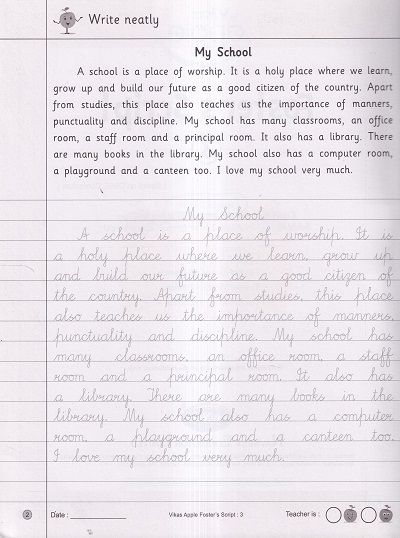 Write neatly
My School
A school is a place of worship. It is a holy place where we learn,
grow up and build our future as a good citizen of the country. Apart
from studies, this place also teaches us the importance of manners,
punctuality and discipline. My school has many classrooms, an office
room, a staff room and a principal room. It also has a library. There
are many books in the library. My school also has a computer room,
a playground and a canteen too. I love my school very much.
My School
A school is a place of worship. It is
a holy place where we learn, grow up
and build our future as a good citizen of
the country. Apart from studies, this place
also teaches us the importance of manners,
punctuality and discipline. My school has
many classrooms, an office room, a staff
room and a principal room. It also has
a library. There are many books in the
library. My school also has a computer
room, a playground and a canteen too.
I love my school very much.
2 Date : Vikas Apple Foster's Script : 3 Teacher is :